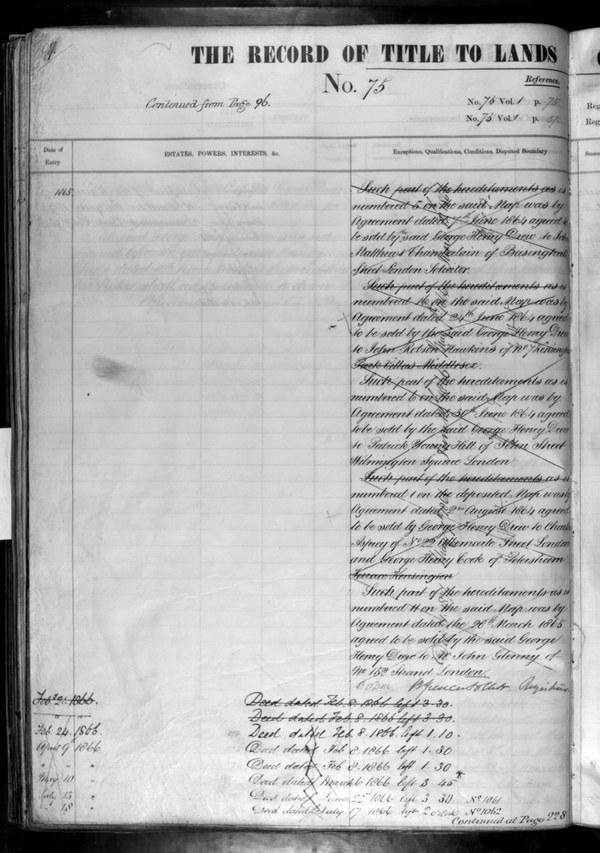 THE RECORD OF TITLE TO LANDS
No. 75
Reference.
Continued from Page 96.
No. 75 Vol. 1 p. 75
No. 75 Vol. 1 p.
Date of Entry
ESTATES, POWERS, INTERESTS, &c.
Exceptions, Qualifications, Conditions, Disputed Boundary
1865
Such part of the hereditaments as is
numbered 5 on the said Map was by
Agreement dated June 1864 agreed
be sold by said George Henry Drew to
Matthews Chamberlain of
Street London Solicitor
Such part of the hereditaments as is
numbered 16 on the said Map was by
Agreement dated 24th June 1864 agreed
to be sold by the said George Henry Drew
to John Robson Hawkins of No. 7
Park Villas Middlesex.
Such part of the hereditaments as is
numbered 6 on the said Map was by
Agreement dated 30th June 1864 agreed
to be sold by the said George Henry Drew
to Patrick Young Hill of John Street
Wilmington Square London
Such part of the hereditaments as is
numbered 1 on the deposited Map was by
Agreement dated August 1864 agreed
to be sold by George Henry Drew to
of No. 22 Albemarle Street London
and George Henry Cook of
Terrace Kensington
Such part of the hereditaments as is
numbered 11 on the said Map was by
Agreement dated the 20th March 1865
agreed to be sold by the said George
Henry Drew to Mr John Glenny of
No 152 Strand London.
Feb 21. 1866 Deed dated Feb 8. 1866 left 3.30.
Deed dated Feb 8. 1866 left 3.30
Feb 24. 1866. Deed dated Feb 8. 1866 left 1.10.
April 9 1866 Deed dated Feb 8 1866 left 1.30
" - " Deed dated Feb 8 1866 left 1.30
May 10 " Deed dated March 6 1866 left 3.45
13 " Deed dated June 22 1866 left 3 30 No 1061
" 18 " Deed dated July 17 1866 left 2 No 1062
Continued at Page 228